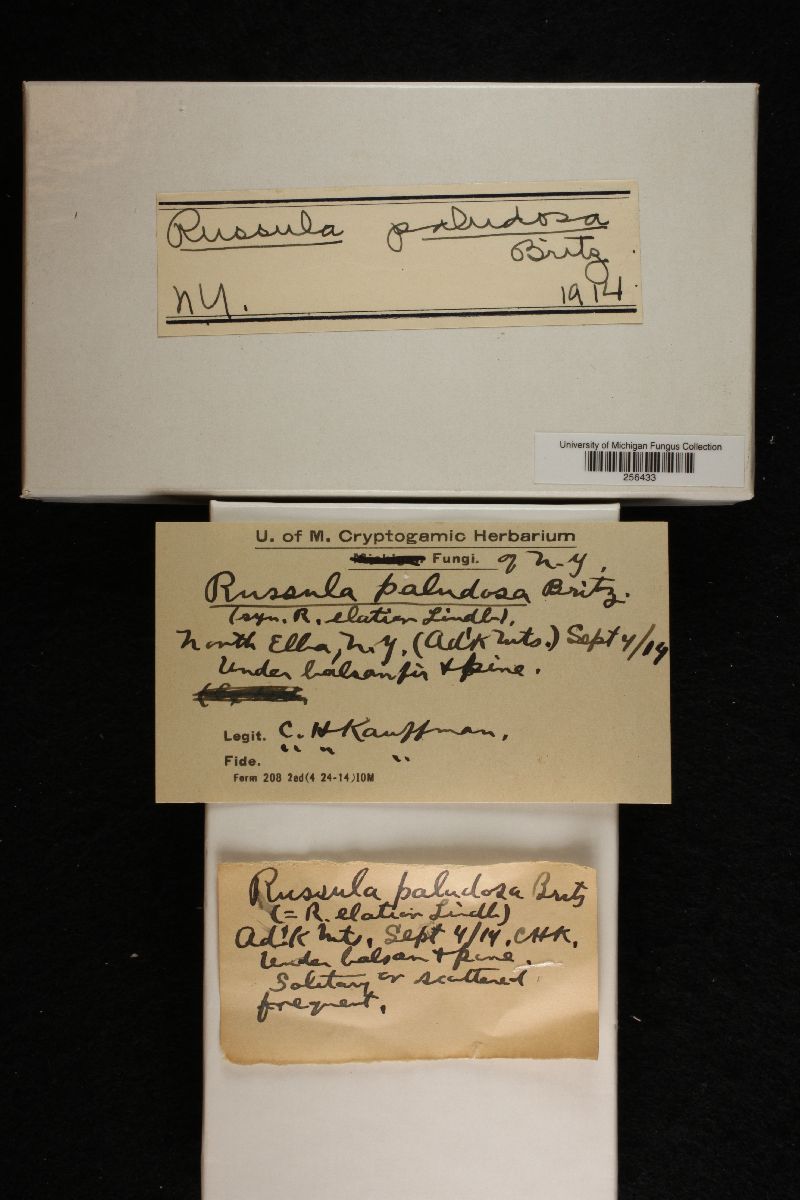 Russula paludosa
Britz.
N.Y. 1914
University of Michigan Fungus Collection
256433
U. of M. Cryptogamic Herbarium
Michigan Fungi. of N.Y.
Russula paludosa Britz.
(syn. R. elatior Lindb.).
North Elba, N.Y. (Ad'k Mts.) Sept 4/14
Under balsam fir & pine.
Legit. C. H Kauffman.
" " "
Fide.
Form 208 2ed(4 24-14)10M
Russula paludosa Britz
(= R. elatior Lindb.)
Ad'K Mts. Sept 4/14. CHK.
Under balsam & pine.
Solitary or scattered
frequent.